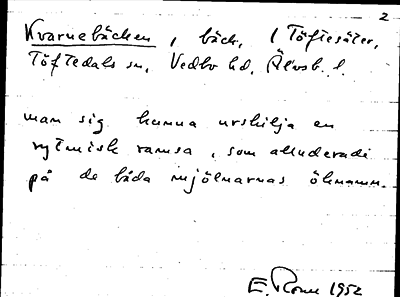 2
Kvarnebäcken, bäck, i Töftesäter,
Töftedals sn, Vedbo hd, Älvsb. l.
man sig kunna urskilja en
rytmisk ramsa, som alluderade
på de båda mjölnarnas öknamn.
E. 1952